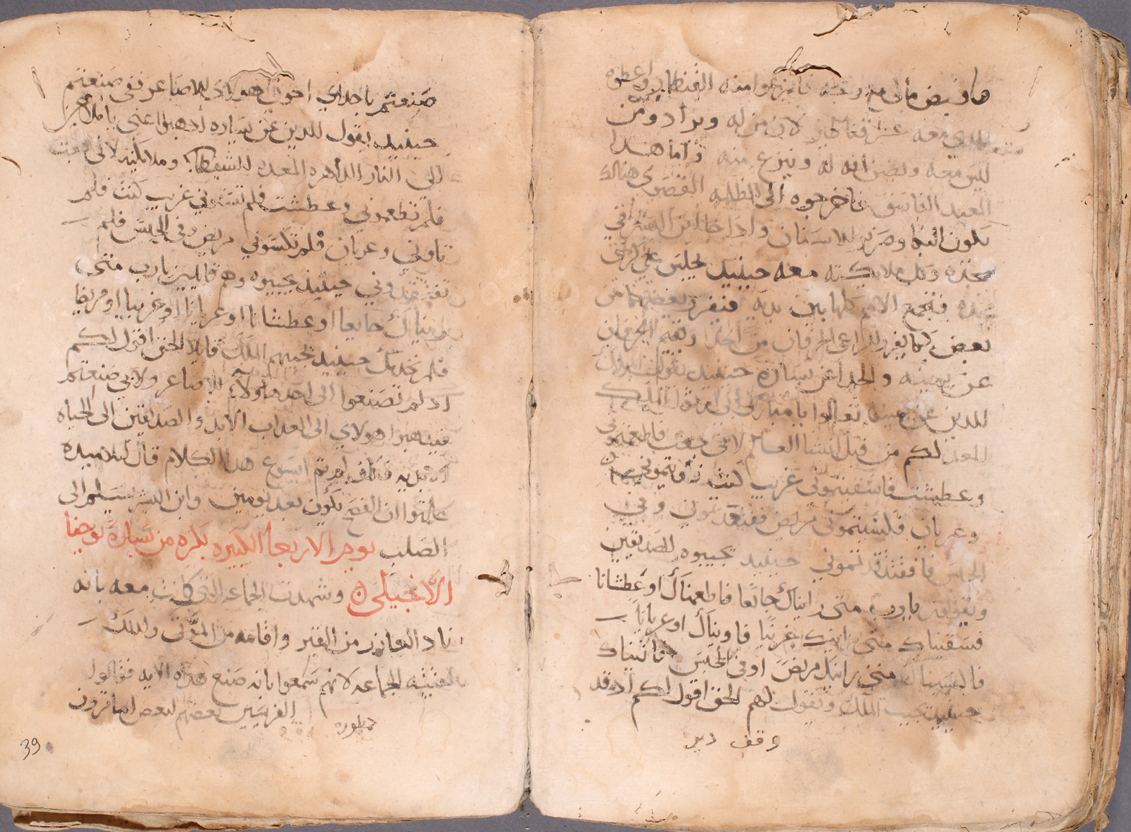 هاد يقبض مالي مع ربحه انزعوا منه القنطار واعطوه
للذي معه عشر قناطير لان من له ويزاد ومن
ليس معه ينزع منه فاما هذا
العبد الفاسق فاخرجوه الى الظلمه القصوى هناك
يكون البكا وصرير الاسنان واذا جا ابن البشر في
مجده وكل ملايكته معه حينيذ يجلس على كرسي
مجده فيجمع الامم كلها بين يديه فيفرز بعضهم من
بعض كما يفرز الراعي الخرفان من الجدا ويقيم الخرفان
عن يمينه والجدا عن يساره حينيذ يقول الملك
للذين عن يمينه تعالوا يا مباركي ابي ارثوا الملك
المعد لكم من قبل انشا العالم لاني جعت فاطعمتموني
وعطشت فاسقيتموني غريب كنت فاويتموني
وعريان فكسيتموني مريض فتعهدتموني وفي
الحبس فافتقدتموني حينيذ يجيبوه الصديقين
ويقولون يارب متى رايناك جائعا فاطعمناك او عطشانا
فسقيناك متى رايناك غريبا فاويناك او عريانا
فالبسناك متى رايناك مريض او في الحبس فاتيناك
حينيذ يجيب الملك ويقول لهم الحق اقول لكم اد قد
وقف دير
صنعتم باحداي اخوتي هولاي الاصاغر في صنعتم
حينيذ يقول للذين عن يساره اذهبوا عني يا ملاعين
الى النار الداهره المعده للشيطان وملايكته لاني جعت
فلم تطعموني وعطشت فلم تسقوني غريب كنت فلم
تاوني وعريان فلم تكسوني مريض وفي الحبس فلم
تعهدوني حينيذ يجيبوه وهم قايلين يارب متى
رايناك جايعا او عطشانا او عريانا او غريبا او مريضا
فلم نخدمك حينيذ يجيبهم الملك قايلا الحق اقول لكم
اد لم تصنعوا الى احد هاولاي الاصاغر ولا بي صنعتم
فيذهبوا هولاي الى العذاب الابد والصديقين الى الحياه
الابديه فلما اتم ايسوع هذا الكلام قال لتلاميده
علمتوا ان الفصح يكون بعد يومين وابن البشر يسلم الى
الصلب يوم الاربعا الكبيره بكره من بشارة يوحنا
الانجيلي وشهدت الجماعه التي كانت معه بانه
ناد العازر من القبر واقامه من الموتى ولذلك
لقيته الجماعه لانهم سمعوا بانه صنع هذه الايه فقالوا
الفريسين بعضهم لبعض اما ترون
39